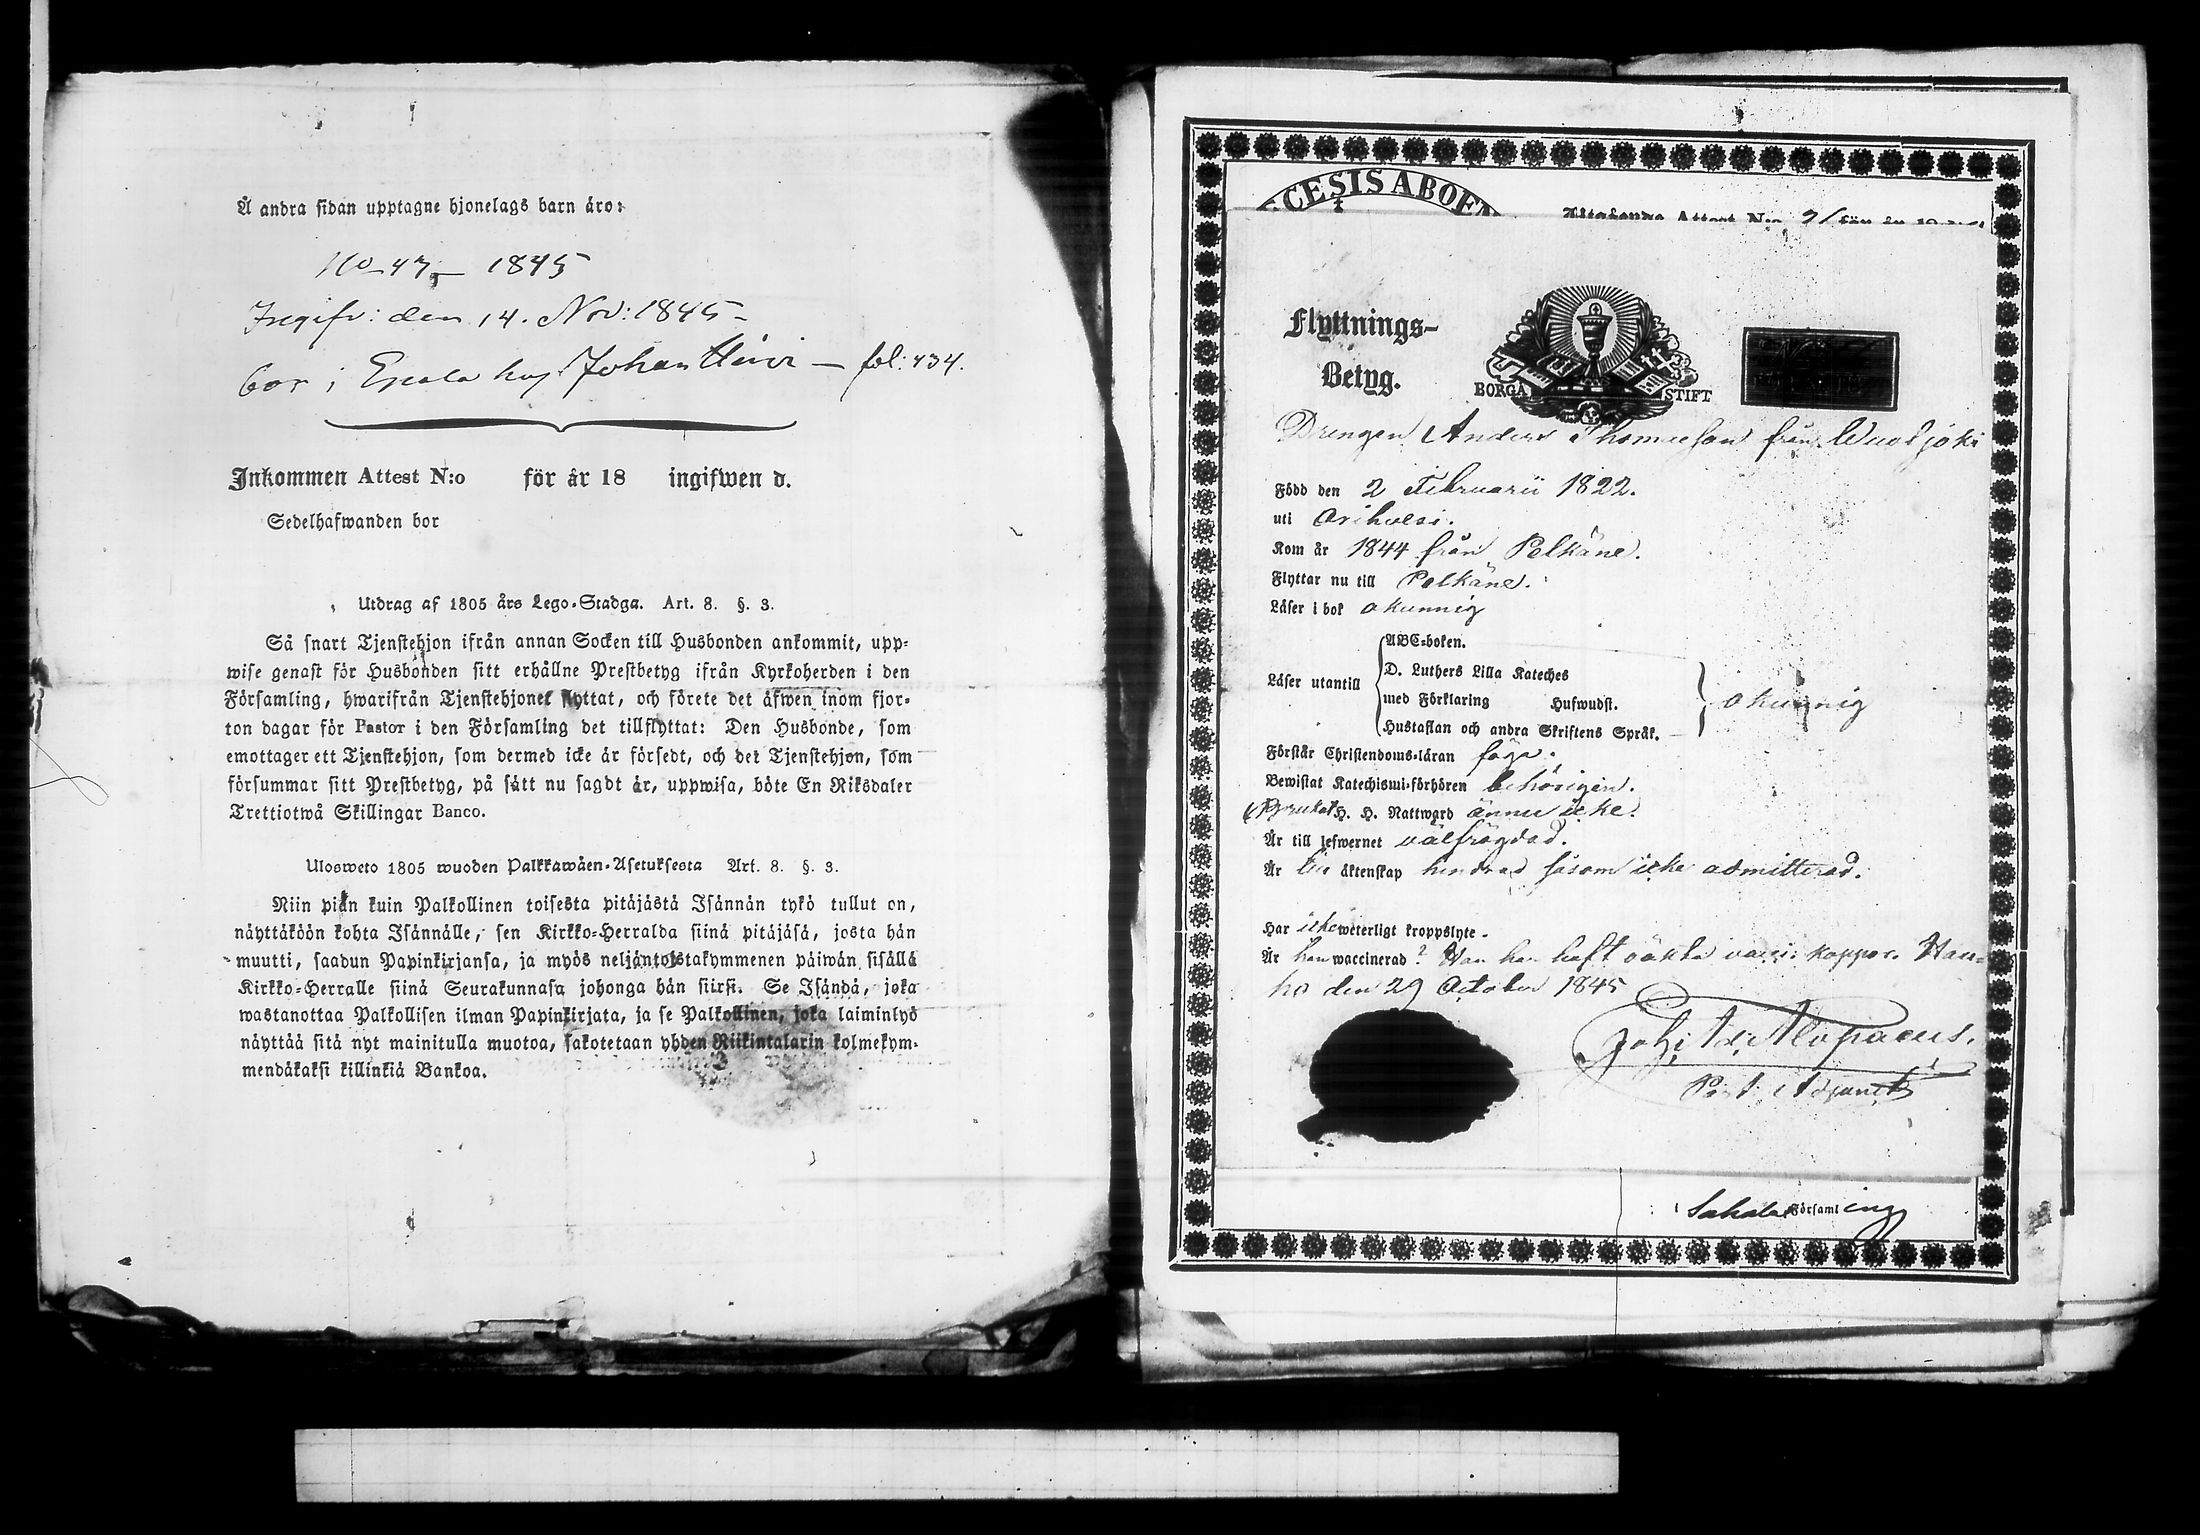 Å andra sidan upptagne hjonelags barn äro:
No 47 1845
Ingifv: den 14. Nov: 1845
bor i Epaala hos Johan Hirvi — fol: 434.
Inkommen Attest N:o för år 18 ingifwen d.
Sedelhafwanden bor
Utdrag af 1805 års Lego-Stadga. Art. 8. §. 3.
Så snart Tjenstehjon ifrån annan Socken till Husbonden ankommit, upp-
wise genast för Husbonden sitt erhållne Prestbetyg ifrån Kyrkoherden i den
Församling, hwarifrån Tjenstehjonet flyttat, och förete det äfwen inom fjor-
ton dagar för Pastor i den Församling det tillflyttat: Den Husbonde, som
emottager ett Tjenstehjon, som dermed icke är försedt, och det Tjenstehjon, som
försummar sitt Prestbetyg, på sätt nu sagdt är, uppwisa, böte En Riksdaler
Trettiotwå Skillingar Banco.
Ulosweto 1805 wuoden Palkkawäen-Asetuksesta Art. 8. §. 3.
Niin pian kuin Palkollinen toisesta pitäjästä Isännän tykö tullut on,
näyttäköön kohta Isännälle, sen Kirkko-Herralda siinä pitäjäsä, josta hän
muutti, saadun Papinkirjansa, ja myös neljäntoistakymmenen päiwän sisällä
Kirkko-Herralle siinä Seurakunnasa johonga hän siirsi. Se Isändä, joka
wastanottaa Palkollisen ilman Papinkirjata, ja se Palkollinen, joka laiminlyö
näyttää sitä nyt mainitulla muotoa, sakotetaan yhden Riikintalarin kolmekym-
mendäkaksi killinkiä Bankoa.
CESIS ABOEN
Utgående Attest N:o 21 för år
Flyttnings-
Betyg.
BORGÅ STIFT
Drengen Anders Thomasson från Wuoljoki
Född den 2 Februarii 1822.
uti Orihvesi.
Kom år 1844 från Pelkäne.
Flyttar nu till Pelkäne.
Läser i bok okunnig
ABC-boken.
D. Luthers Lilla Kateches
Läser utantill
med Förklaring Hufwudst. okunnig
Hustaflan och andra Skriftens Språk.
Förstår Christendoms-läran föga.
Bewistat Katechismi-förhören behörigen.
Brukat H. H. Nattward ännu icke.
Är till lefwernet välfrägdad.
Är till äktenskap hindrad såsom icke admitterad.
Har icke weterligt kroppslyte.
Är han waccinerad? Han har haft äkta vacc. koppor. Hau-
ho den 29 October 1845
Joh: Ad: Alopaeus.
Past: Adjunct
Sahalax Församling